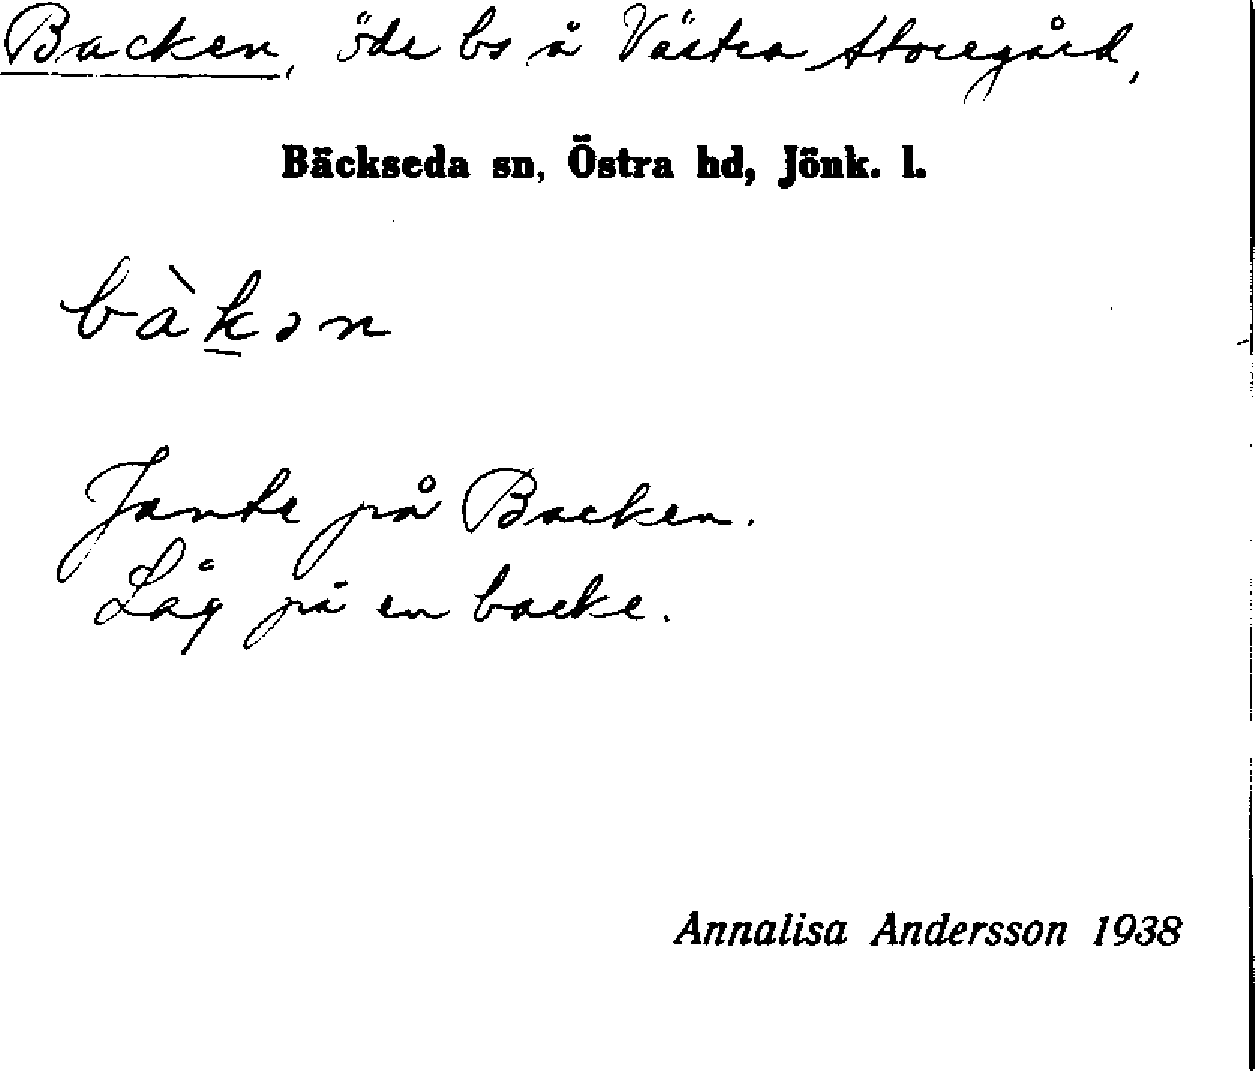 Backen, öde bs å Västra Storegård,
Bäckseda sn, Östra hd, Jönk. l.
bàkən
Jante på Backen.
Låg på en backe.
Annalisa Andersson 1938